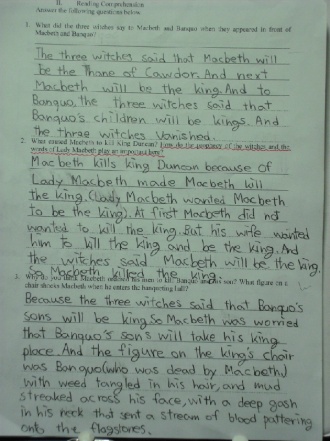 II. Reading Comprehension
Answer the following questions below.
1. What did the three witches say to Macbeth and Banquo when they appeared in front of
Macbeth and Banquo?
The three witches said that Macbeth will
be the Thane of Cawdor. And next
Macbeth will be the king. And to
Banquo, the three witches said that
Banquo's children will be kings. And
the three witches vanished.
2. What caused Macbeth to kill King Duncan? How do the prophecy of the witches and the
words of Lady Macbeth play an important here?
Macbeth kills king Duncan because of
Lady Macbeth made Macbeth kill
the king. (Lady Macbeth wanted Macbeth
to be the king). At first Macbeth did not
wanted to kill the king. But his wife wanted
him to kill the king and be the king. And
the witches said Macbeth will be the king.
So Macbeth killed the king.
3. Why did Macbeth his men to kill Banquo and his son? What figure on a
chair shocks Macbeth when he enters the banqueting hall?
Because the three witches said that Banquo's
sons will be king. So Macbeth was worried
that Banquo's sons will take his king
place. And the figure on the king's chair
was Banquo (who was dead by Macbeth)
with weed tangled in his hair, and mud
streaked across his face, with a deep gash
in his neck that sent a stream of blood pattering
onto the flagstones.